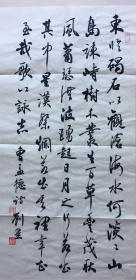 東臨碣石以觀滄海水何澹澹山
島竦峙樹木叢生百草豐茂秋
風蕭瑟洪波踴起日月之行若出
其中星漢粲爛若出其里幸甚
至哉歌以詠志 曹孟德詩 劉